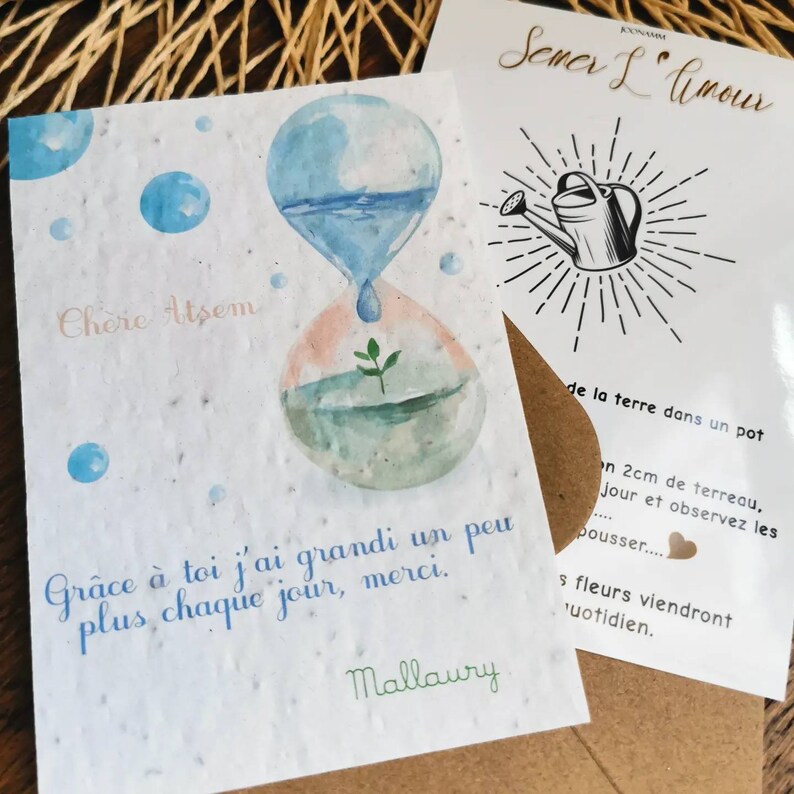 Chère Atsem
Grâce à toi j'ai grandi un peu
plus chaque jour, merci.
Mallaury
JOONAMM
Semer L'Amour
de la terre dans un pot
2cm de terreau,
jour et observez les
....
pousser....
fleurs viendront
quotidien.